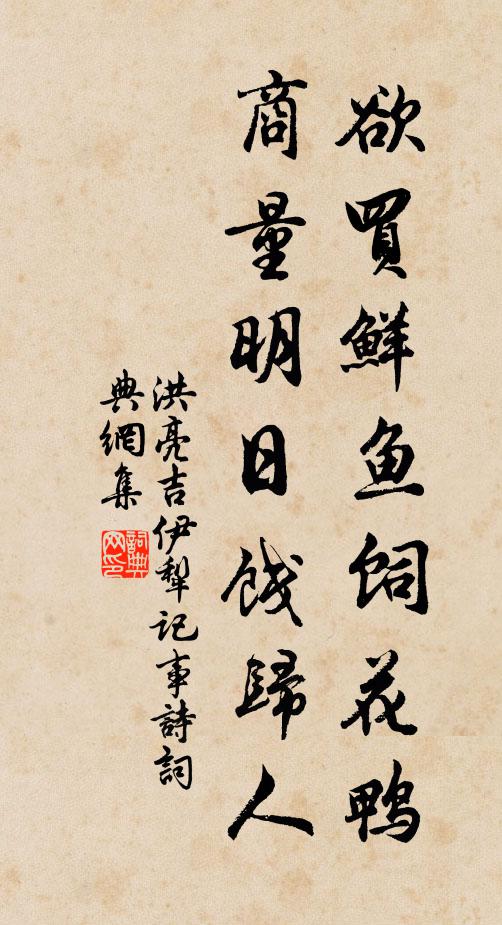 欲買鮮魚飼花鴨
商量明日餞歸人
洪亮吉伊犁記事詩詞
典網集
詞典
网印